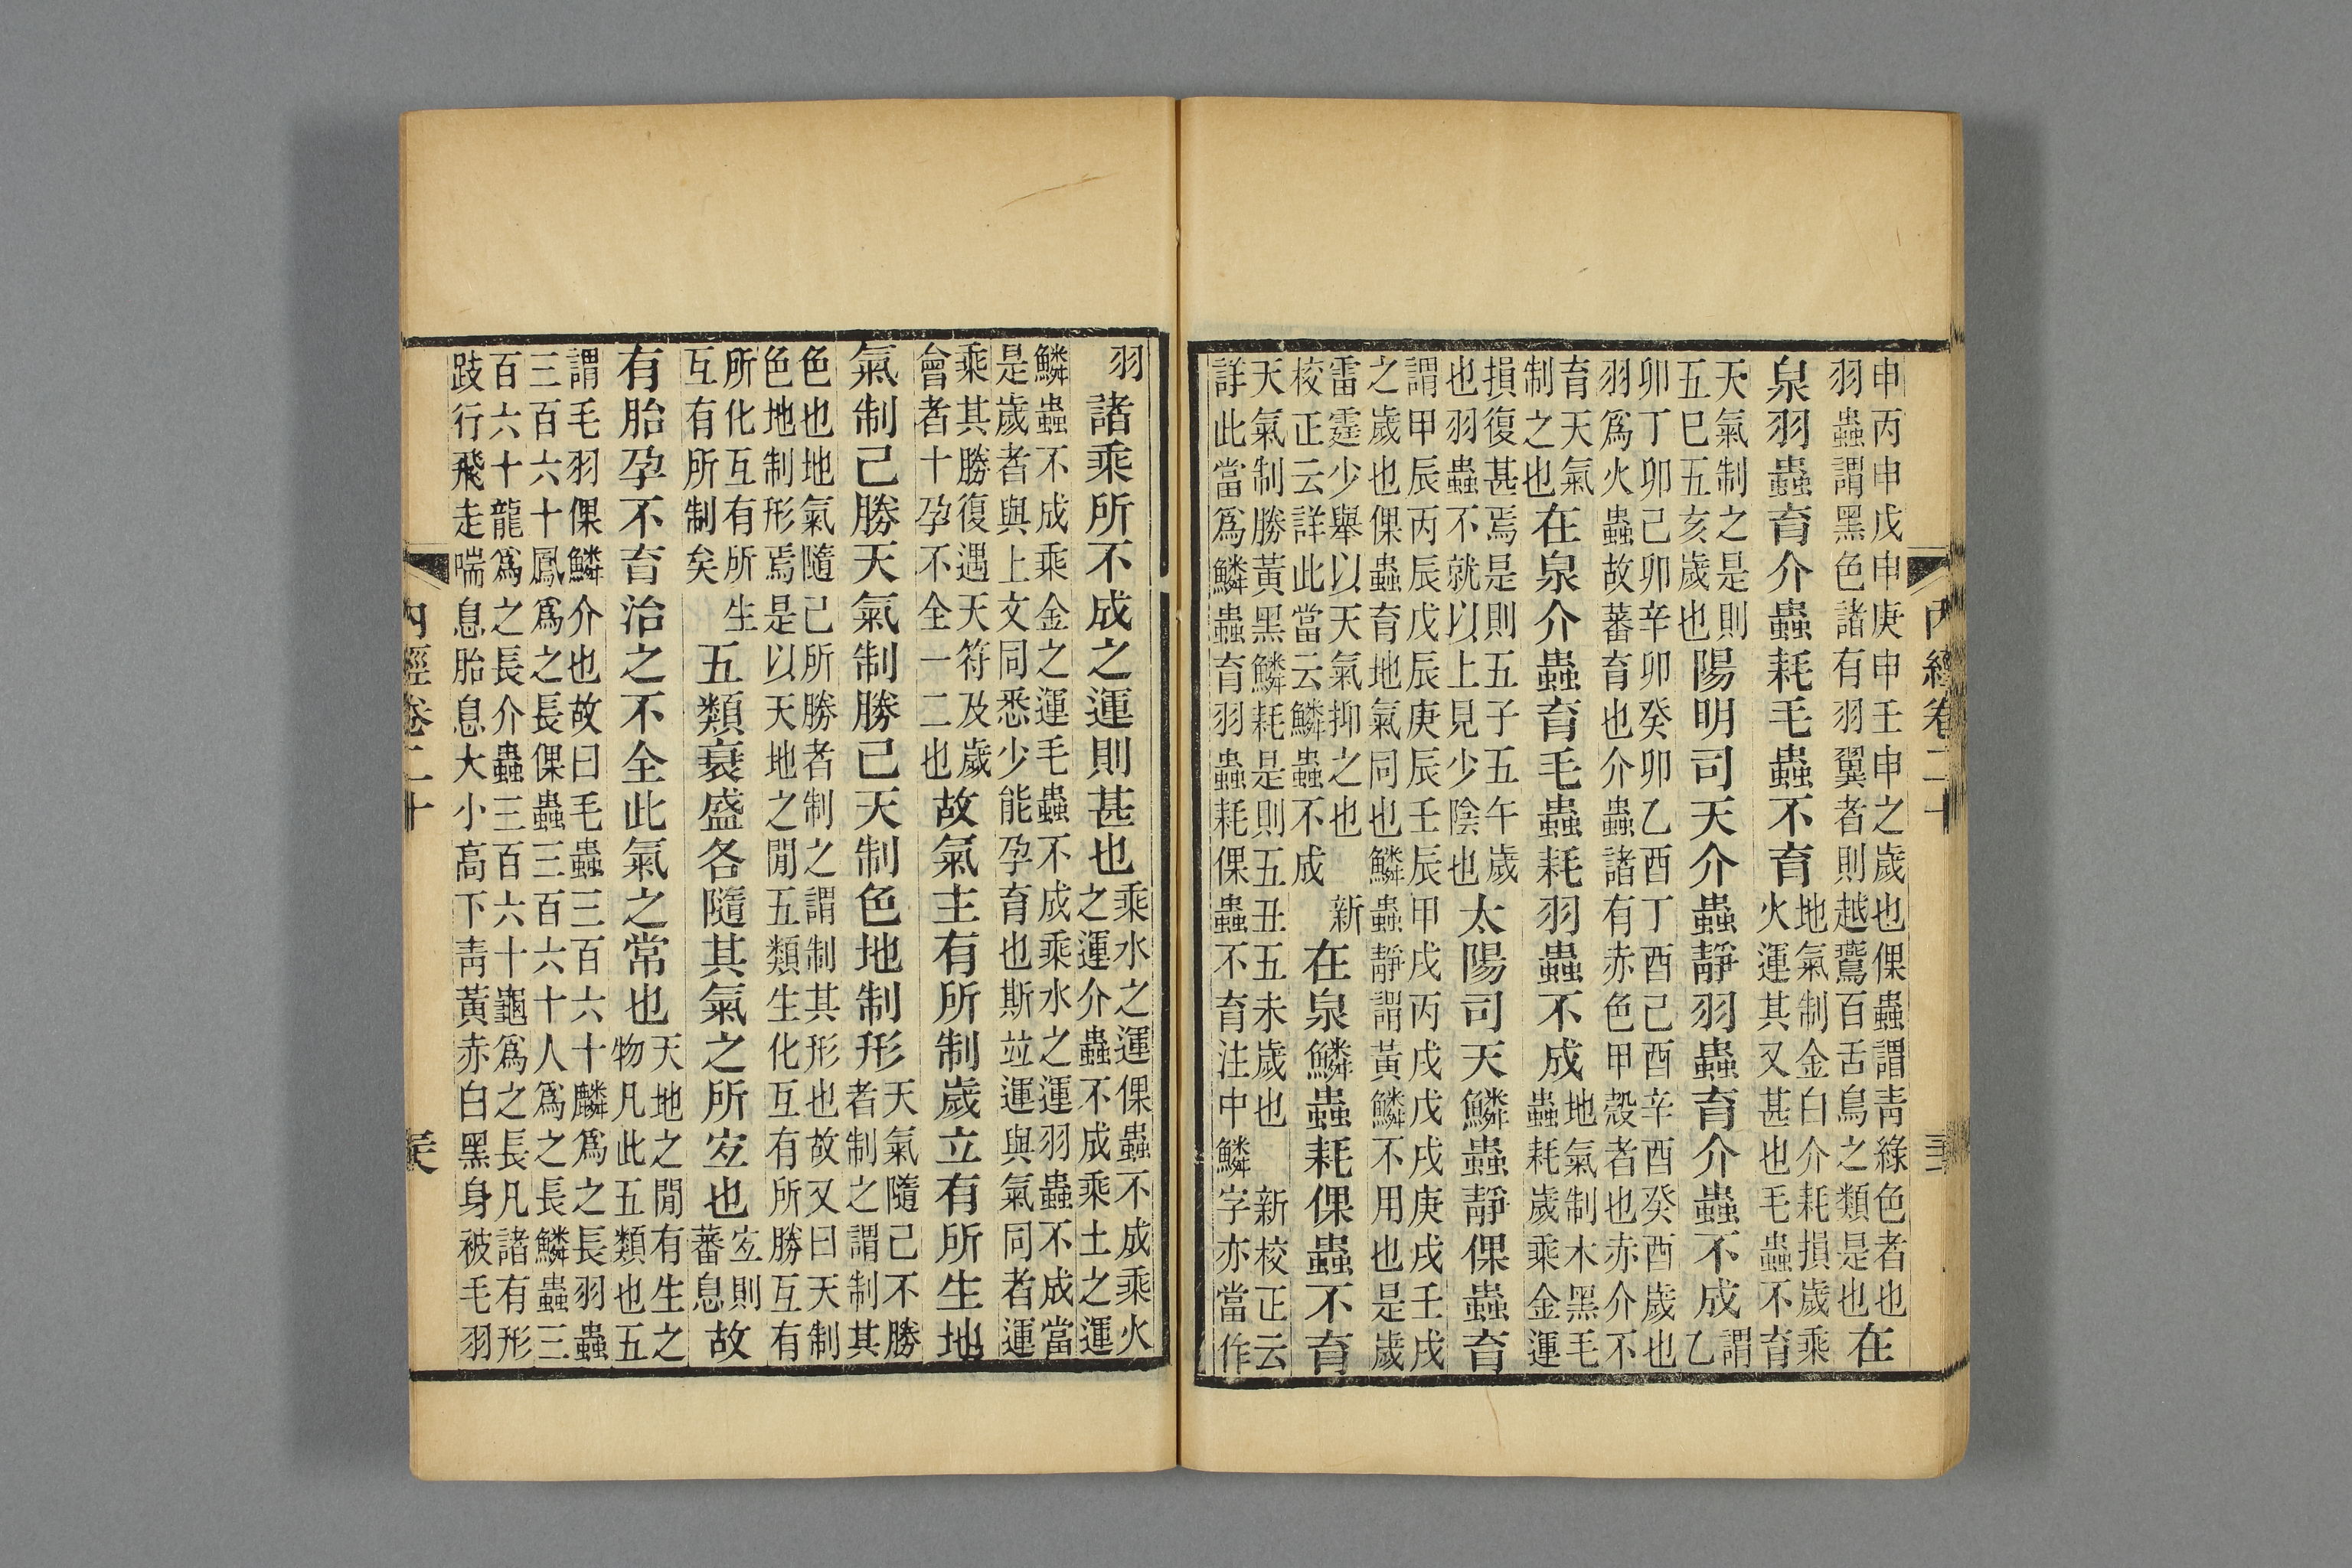 內經卷二十
申丙申戊申庚申壬申之歲也倮蟲謂青綠色者也
羽蟲謂黑色諸有羽翼者則越鷖百舌鳥之類是也
在
泉羽蟲育介蟲耗毛蟲不育
地氣制金白介耗損歲乘
火運其又甚也毛蟲不育
天氣制之是則
五巳五亥歲也
陽明司天介蟲靜羽蟲育介蟲不成
謂
乙
卯丁卯己卯辛卯癸卯乙酉丁酉己酉辛酉癸酉歲也
羽爲火蟲故蕃育也介蟲諸有赤色甲殼者也赤介不
育天氣
制之也
在泉介蟲育毛蟲耗羽蟲不成
地氣制木黑毛
蟲耗歲乘金運
損復甚焉是則五子五午歲
也羽蟲不就以上見少陰也
太陽司天鱗蟲靜倮蟲育
謂甲辰丙辰戊辰庚辰壬辰甲戌丙戌戊戌庚戌壬戌
之歲也倮蟲育地氣同也鱗蟲靜謂黃鱗不用也是歲
雷霆少舉以天氣抑之也 新
校正云詳此當云鱗蟲不成
在泉鱗蟲耗倮蟲不育
天氣制勝黃黑鱗耗是則五丑五未歲也 新校正云
詳此當爲鱗蟲育羽蟲耗倮蟲不育注中鱗字亦當作
羽
諸乘所不成之運則甚也
乘水之運倮蟲不成乘火
之運介蟲不成乘土之運
鱗蟲不成乘金之運毛蟲不成乘水之運羽蟲不成當
是歲者與上文同悉少能孕育也斯竝運與氣同者運
乘其勝復遇天符及歲
會者十孕不全一二也
故氣主有所制歲立有所生地
氣制己勝天氣制勝己天制色地制形
天氣隨己不勝
者制之謂制其
色也地氣隨己所勝者制之謂制其形也故又曰天制
色地制形焉是以天地之閒五類生化互有所勝互有
所化互有所生
互有所制矣
五類衰盛各隨其氣之所宐也
宐則
蕃息
故
有胎孕不育治之不全此氣之常也
天地之閒有生之
物凡此五類也五
謂毛羽倮鱗介也故曰毛蟲三百六十麟爲之長羽蟲
三百六十鳳爲之長倮蟲三百六十人爲之長鱗蟲三
百六十龍爲之長介蟲三百六十龜爲之長凡諸有形
跂行飛走喘息胎息大小高下青黃赤白黑身被毛羽
內經卷二十